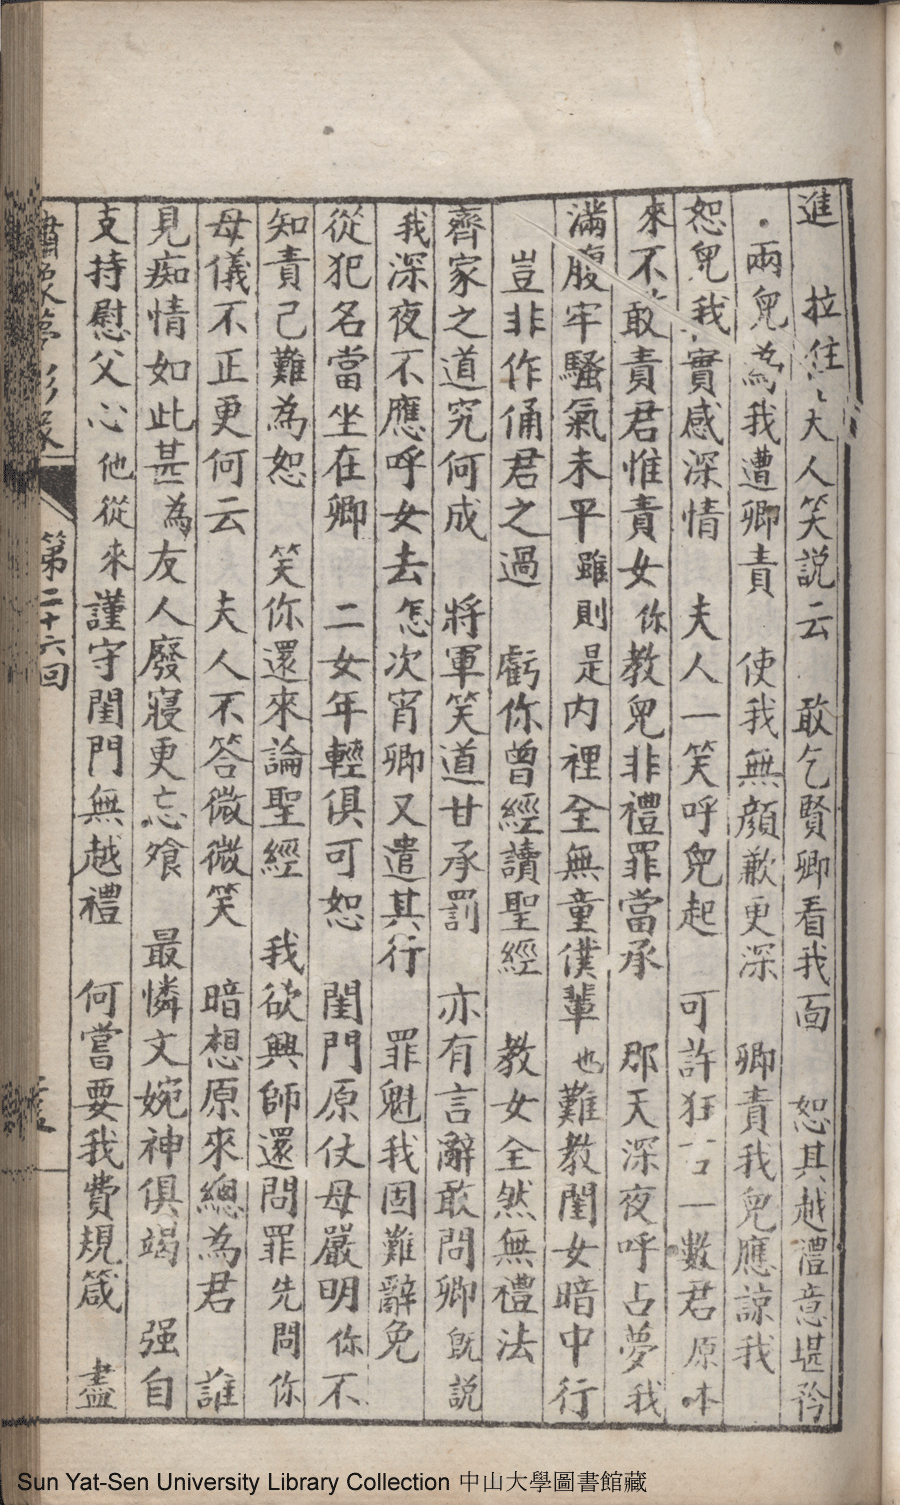 進 拉住 夫人笑説云 敢乞賢卿看我面 恕其越澧意堪矜
兩兒為我遭卿責 使我無顔歉更深 卿責我兒應諒我
恕兒我實感深情 夫人一笑呼兒起 可許狂 一數君原本
來不敢責君惟責女你教兒非禮罪當承 那天深夜呼占夢我
滿腹牢騷氣未平雖則是内裡全無童僕輩也難教閨女暗中行
豈非作俑君之過 虧你曾經讀聖經 教女全然無禮法
齊家之道究何成 將軍笑道甘承罰 亦有言辭敢問卿既説
我深夜不應呼女去怎次宵卿又遣其行 罪魁我固難辭免
從犯名當坐在卿 二女年輕俱可恕 閨門原仗母嚴明你不
知責己難為恕 笑你還來論聖經 我欲興師還問罪先問你
母儀不正更何云 夫人不答微微笑 暗想原來總為君 誰
見痴情如此甚為友人廢寢更忘飧 最憐文婉神俱竭 强自
支持慰父心他從來謹守閨門無越禮 何嘗要我費規箴 盡
夢影緣
第二十六回
Sun Yat-Sen University Library Collection 中山大學圖書館藏